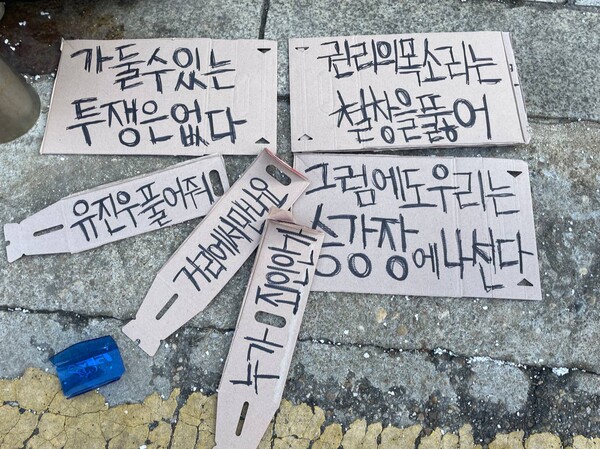 가둘수있는
투쟁은없다
권리의목소리는
철창을뚫어
유진우풀어줘
거리에서만나요
누가 죄인인가
그럼에도우리는
승강장에나선다